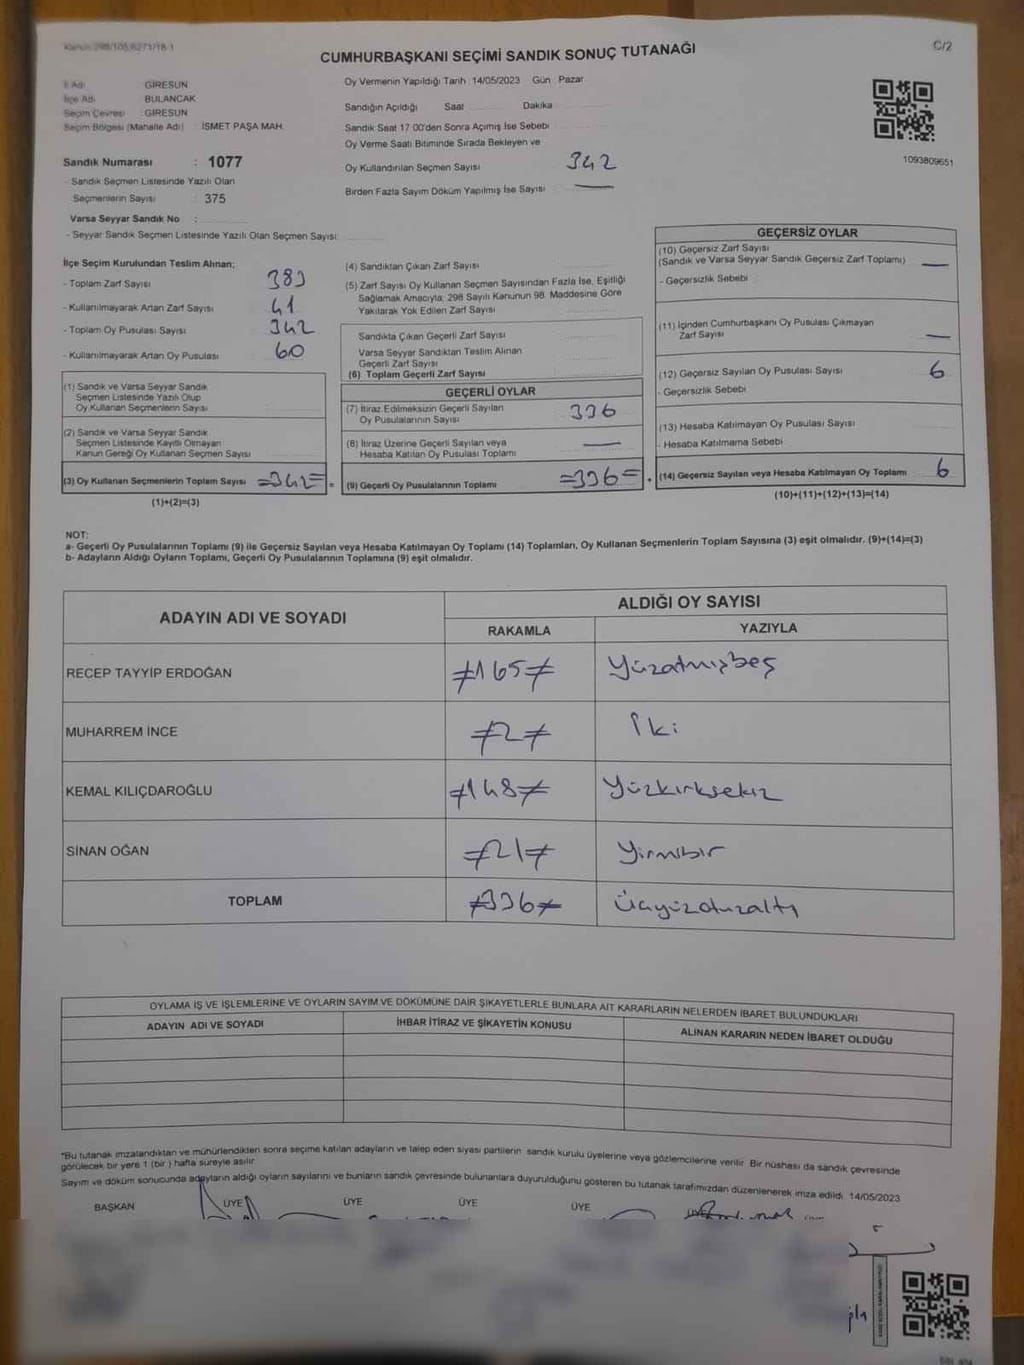 Kanun 298/105,6271/18-1
C/2
CUMHURBAŞKANI SEÇİMİ SANDIK SONUÇ TUTANAĞI
İl Adı : GİRESUN
İlçe Adı : BULANCAK
Seçim Çevresi : GİRESUN
Seçim Bölgesi (Mahalle Adı) : İSMET PAŞA MAH.
Sandık Numarası : 1077
- Sandık Seçmen Listesinde Yazılı Olan
Seçmenlerin Sayısı : 375
Varsa Seyyar Sandık No :
- Seyyar Sandık Seçmen Listesinde Yazılı Olan Seçmen Sayısı:
Oy Vermenin Yapıldığı Tarih :14/05/2023 Gün : Pazar
Sandığın Açıldığı Saat Dakika
Sandık Saat 17.00'den Sonra Açımış İse Sebebi
Oy Verme Saati Bitiminde Sırada Bekleyen ve
Oy Kullandırılan Seçmen Sayısı 342
Birden Fazla Sayım Döküm Yapılmış İse Sayısı —
1093809651
İlçe Seçim Kurulundan Teslim Alınan;
- Toplam Zarf Sayısı 383
- Kullanılmayarak Artan Zarf Sayısı 41
- Toplam Oy Pusulası Sayısı 342
- Kullanılmayarak Artan Oy Pusulası 60
(1) Sandık ve Varsa Seyyar Sandık
Seçmen Listesinde Yazılı Olup
Oy Kullanan Seçmenlerin Sayısı
(2) Sandık ve Varsa Seyyar Sandık
Seçmen Listesinde Kayıtlı Olmayan
Kanun Gereği Oy Kullanan Seçmen Sayısı
(3) Oy Kullanan Seçmenlerin Toplam Sayısı =342=
(1)+(2)=(3)
(4) Sandıktan Çıkan Zarf Sayısı
(5) Zarf Sayısı Oy Kullanan Seçmen Sayısından Fazla İse, Eşitliği
Sağlamak Amacıyla; 298 Sayılı Kanunun 98. Maddesine Göre
Yakılarak Yok Edilen Zarf Sayısı
Sandıkta Çıkan Geçerli Zarf Sayısı
Varsa Seyyar Sandıktan Teslim Alınan
Geçerli Zarf Sayısı
(6) Toplam Geçerli Zarf Sayısı
GEÇERLİ OYLAR
(7) İtiraz Edilmeksizin Geçerli Sayılan
Oy Pusulalarının Sayısı 336
(8) İtiraz Üzerine Geçerli Sayılan veya
Hesaba Katılan Oy Pusulası Toplamı —
(9) Geçerli Oy Pusulalarının Toplamı =336=
GEÇERSİZ OYLAR
(10) Geçersiz Zarf Sayısı
(Sandık ve Varsa Seyyar Sandık Geçersiz Zarf Toplamı) —
- Geçersizlik Sebebi :
(11) İçinden Cumhurbaşkanı Oy Pusulası Çıkmayan
Zarf Sayısı —
(12) Geçersiz Sayılan Oy Pusulası Sayısı 6
- Geçersizlik Sebebi
(13) Hesaba Katılmayan Oy Pusulası Sayısı
- Hesaba Katılmama Sebebi
(14) Geçersiz Sayılan veya Hesaba Katılmayan Oy Toplamı 6
(10)+(11)+(12)+(13)=(14)
NOT:
a- Geçerli Oy Pusulalarının Toplamı (9) ile Geçersiz Sayılan veya Hesaba Katılmayan Oy Toplamı (14) Toplamları, Oy Kullanan Seçmenlerin Toplam Sayısına (3) eşit olmalıdır. (9)+(14)=(3)
b- Adayların Aldığı Oyların Toplamı, Geçerli Oy Pusulalarının Toplamına (9) eşit olmalıdır.
ADAYIN ADI VE SOYADI ALDIĞI OY SAYISI
RAKAMLA YAZIYLA
RECEP TAYYİP ERDOĞAN ≠165≠ Yüzatmışbeş
MUHARREM İNCE ≠2≠ İki
KEMAL KILIÇDAROĞLU ≠148≠ Yüzkırksekiz
SİNAN OĞAN ≠21≠ Yirmibir
TOPLAM ≠336≠ Üçyüzotuzaltı
OYLAMA İŞ VE İŞLEMLERİNE VE OYLARIN SAYIM VE DÖKÜMÜNE DAİR ŞİKAYETLERLE BUNLARA AİT KARARLARIN NELERDEN İBARET BULUNDUKLARI
ADAYIN ADI VE SOYADI İHBAR İTİRAZ VE ŞİKAYETİN KONUSU ALINAN KARARIN NEDEN İBARET OLDUĞU
*Bu tutanak imzalandıktan ve mühürlendikten sonra seçime katılan adayların ve talep eden siyasi partilerin sandık kurulu üyelerine veya gözlemcilerine verilir. Bir nüshası da sandık çevresinde
görülecek bir yere 1 (bir ) hafta süreyle asılır.
Sayım ve döküm sonucunda adayların aldığı oyların sayılarını ve bunların sandık çevresinde bulunanlara duyurulduğunu gösteren bu tutanak tarafımızdan düzenlenerek imza edildi. 14/05/2023
BAŞKAN ÜYE ÜYE ÜYE ÜYE ÜYE